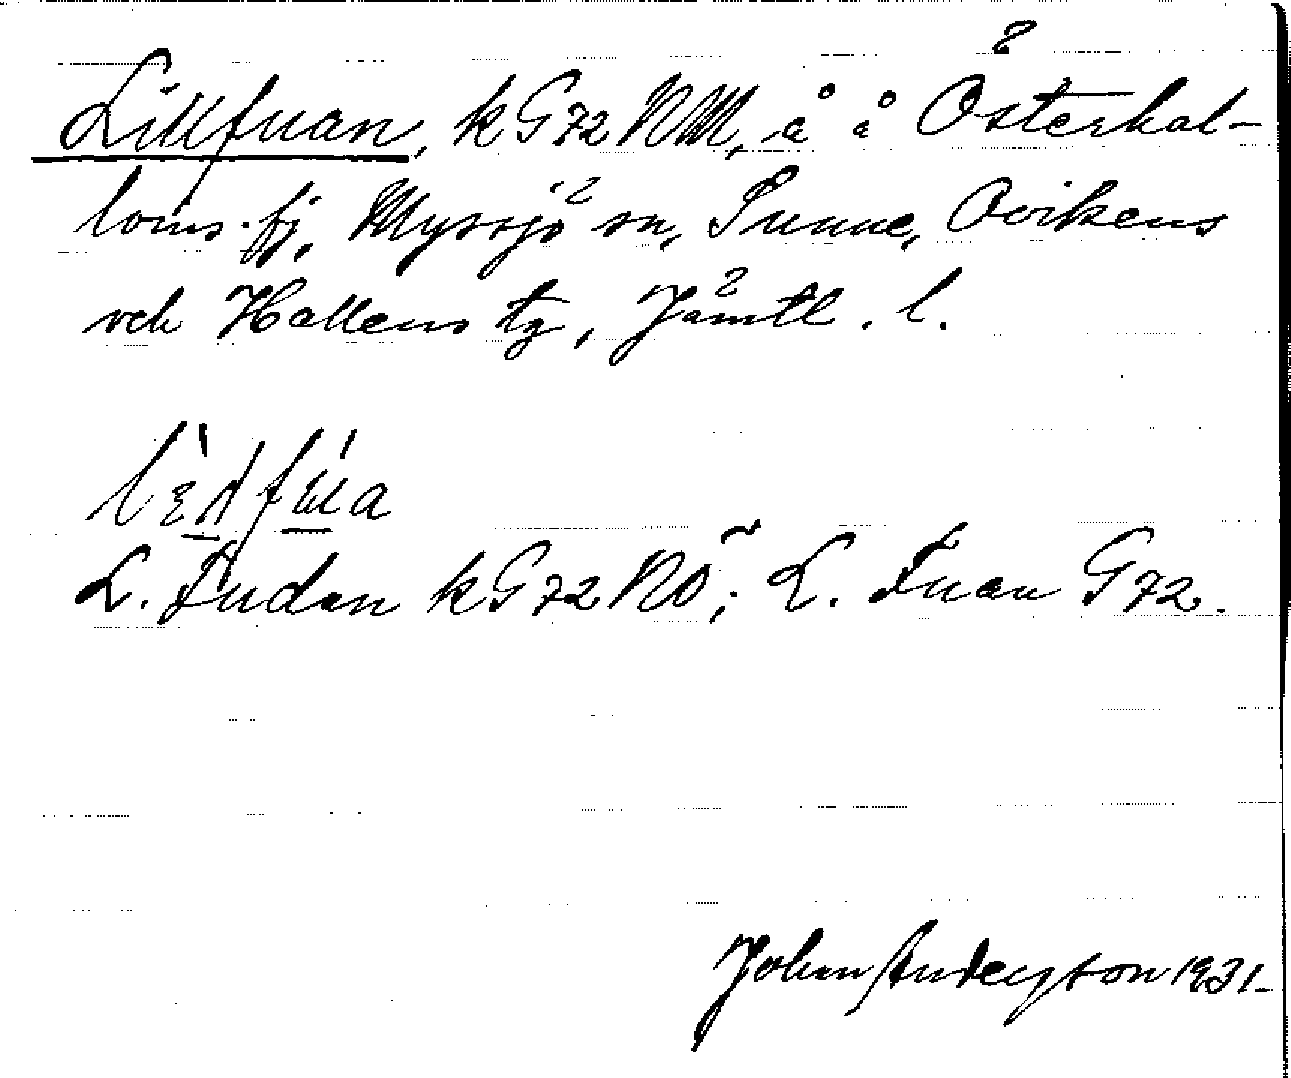 Lillfuan, k G72 NM, å å Österkal-
loms fj, Myssjö sn, Sunne, Ovikens
och Hallens tg, Jämtl. l.
L. Fudan k G72 NÖ; L. Fuan G72.
Johan Anderzson 1931.